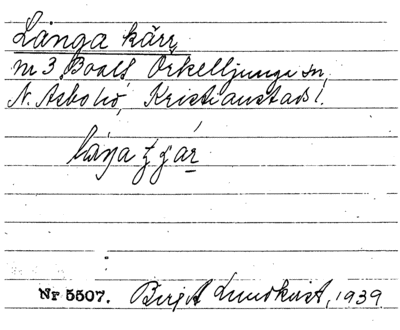 Långa kärr
nr 3 Boalt Örkelljunga sn,
N. Åsbo hd, Kristianstads l.
Nr 5507. Birgit Lundkvist, 1939